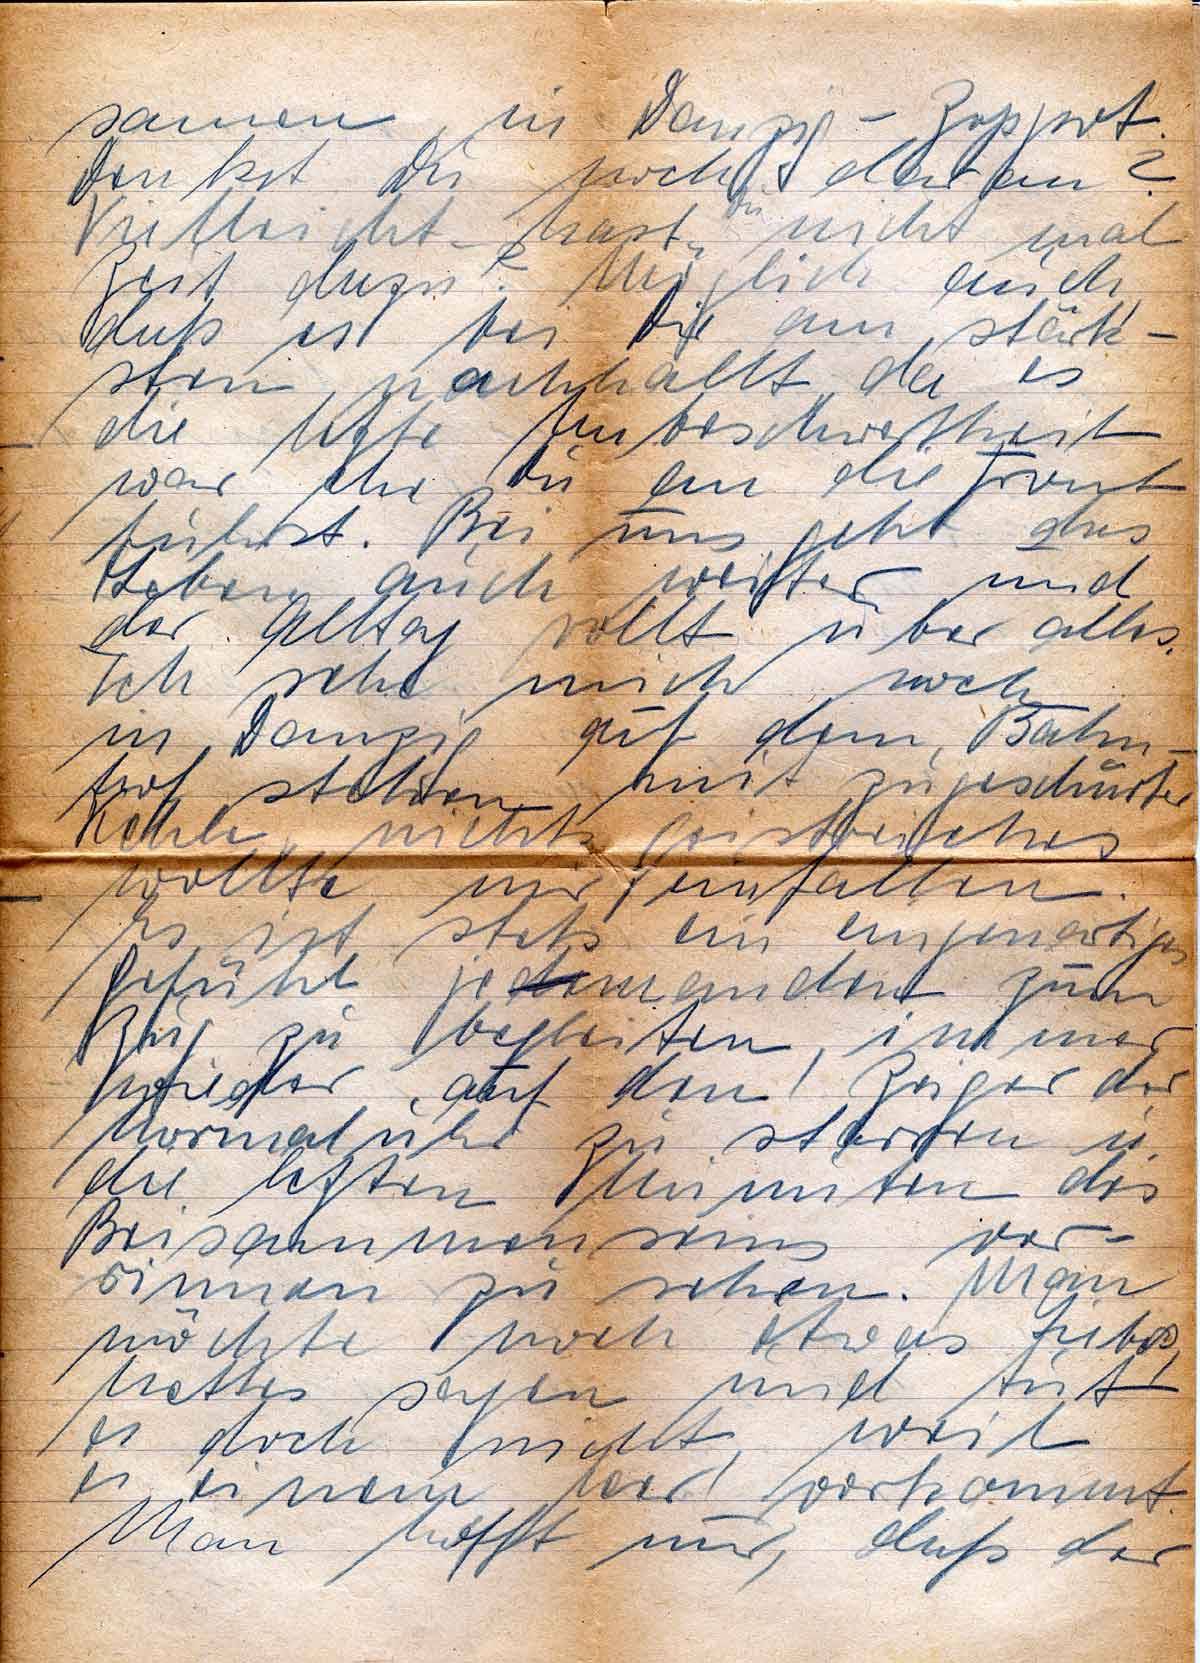 samen in Danzig - Zoppot.
Denkst Du noch daran?
Vielleicht hast Du nicht mal
Zeit dazu? Möglich auch,
daß es bei Dir am stärk-
sten nachhallt, da es
die letzte Unbeschwertheit
war ehe Du an die Front
fuhrst. Bei uns geht das
Leben auch weiter und
der Alltag rollt über alles.
Ich sehe mich noch
in Danzig auf dem Bahn-
hof stehen mit zugeschnürter
Kehle, nichts geistreiches
wollte mir einfallen.
Es ist stets ein eigenartiges
Gefühl jemanden zum
Zug zu begleiten, immer
wieder auf den Zeiger der
Normaluhr zu starren u.
die letzten Minuten des
Beisammenseins ver-
rinnen zu sehen. Man
möchte noch etwas liebes,
nettes sagen und tut
es doch nicht, weil
es einem leer vorkommt.
Man hofft nur, daß der